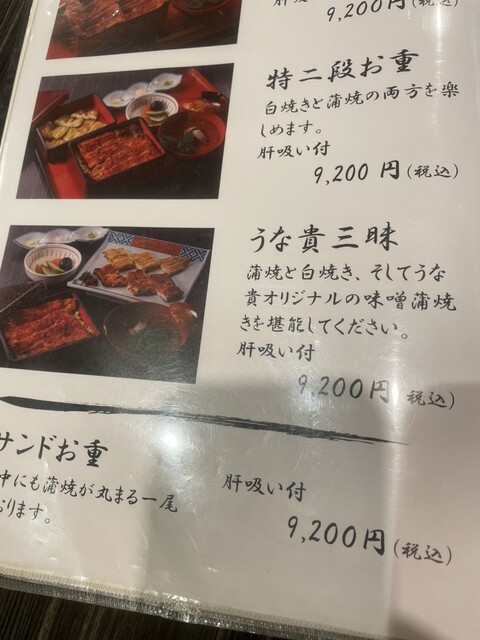 肝吸い付
9,200円(税込)
特二段お重
白焼きと蒲焼の両方を楽
しめます。
肝吸い付
9,200円(税込)
うな貴三昧
蒲焼と白焼き、そしてうな
貴オリジナルの味噌蒲焼
きを堪能してください。
肝吸い付
9,200円(税込)
サンドお重
中にも蒲焼が丸まる一尾
おります。
肝吸い付
9,200円(税込)